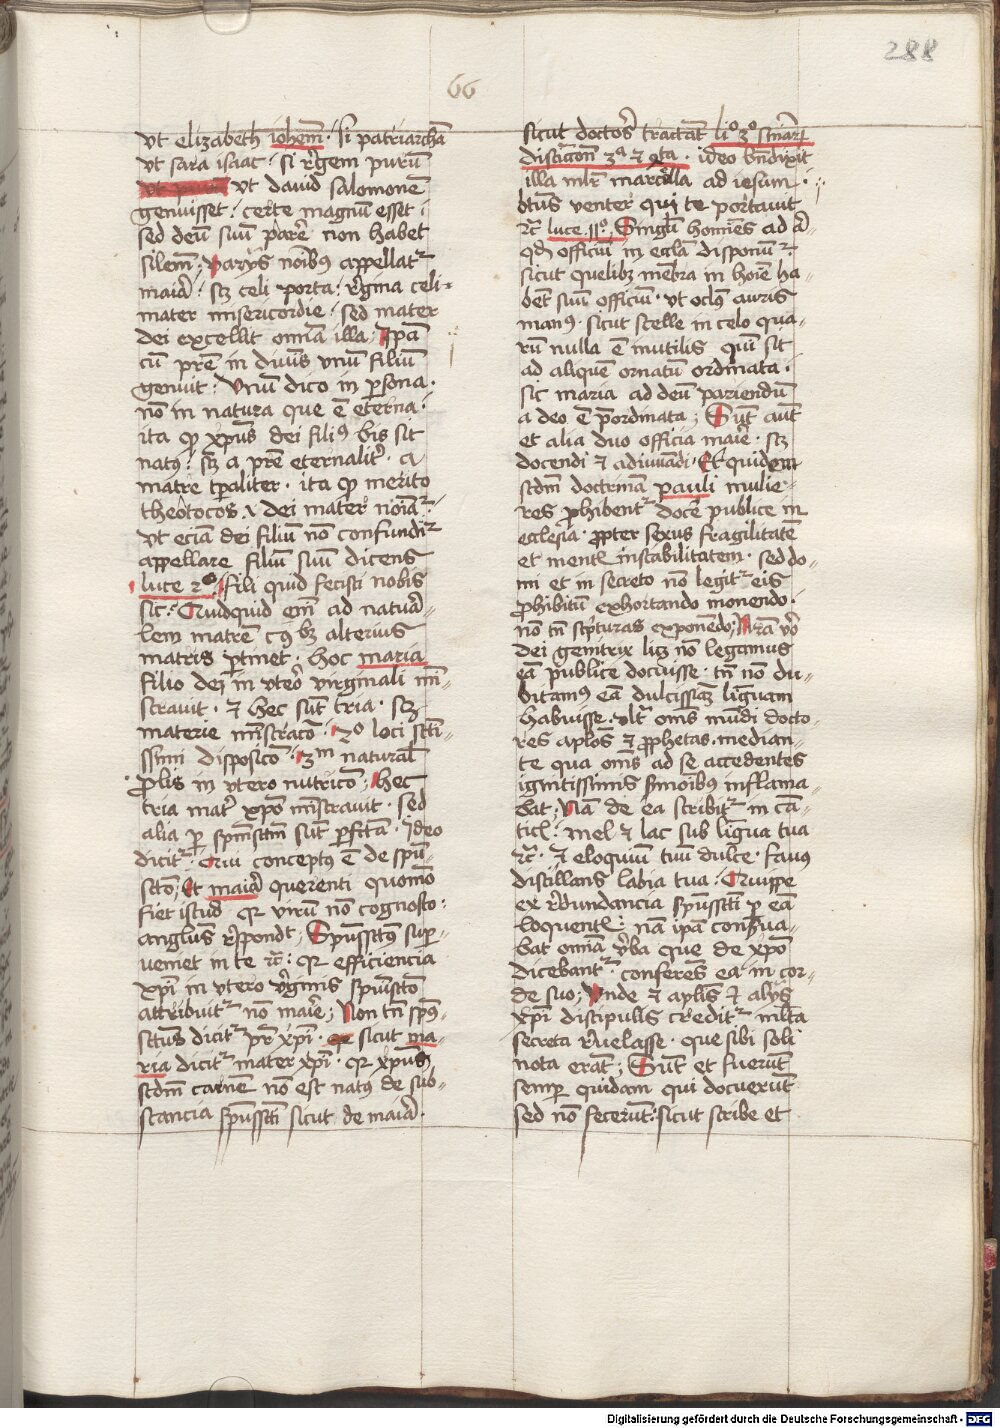 288
66
vt elizabeth iohem̄. si patriarchā
vt sara isaac. si rēgem purū
vt dauid salomonē
genuisset. certe magnū esset
sed deū suū parē non habet
silem̄. varijs noībus appellat᷑
maīa. scz celi porta. rēgina celi
mater misericordie. sed mater
dei excellit om̄ia illa. Ipā
cū prē in diuīs vnū filiū
genuit. vnū dico in psona.
nō in natura que ē eterna.
ita qꝫ xp̄us dei filiꝰ bis sit
natꝰ. scz a prē eternalit̄. a
matre tp̄aliter. ita qꝫ merito
theotocos & dei mater noīat᷑.
vt eciā dei filiū nō confundit᷑
appellare filiū suū dicens
luce 2º. fili quid fecisti nobis
sic. Quidquid em̄ ad natura-
lem matrē cꝰ bꝫ alterius
matris ptinet. hoc maria
filio dei in vtero virginali mi-
strauit. & hec sūt tria. scz
materie mistracō. 2º loci scti-
ssimi disposicō. 3m naturał
prolis in vtero nutricō. hec
tria mat̄ xpō mīstrauit. sed
alia p spm̄sctm̄ sūt pfcā. Ideo
dicit᷑. Qui conceptꝰ ē de spū-
sctō. Et maīa querenti quomō
fiet istud qr virū nō cognosco.
anglus rn̄spondt. Spūssctꝰ supr
ueniet in te rc̄. qr efficiencia
xpī in vtero v̄ginis spūisctō
attribuit᷑ nō maīe. Non tn̄ spūs-
sctus dicit᷑ pr̄ xpī. sicut ma-
ria dicit᷑ mater xpī. qr xpūs
scdm carnē nō est natꝰ de sub-
stancia spūsscti sicut de maīa.
sicut doctoes tractāt liº 3º sniār
distictōn 3ª & qrta. ideo bn̄dixit
illa mlr̄ marcella ad iesum.
btūs venter qui te portauit
rc̄ luce 11º. Singlī homīes ad a-
qd̄ officiū in eglā disponū᷑.
sicut quelibꝫ mēbra in hoīe ha-
bēt suū officiū. vt oclꝰ auris
manꝰ. sicut stelle in celo qua-
rū nulla ē inutilis quī sit
ad aliquē ornatum ordinata.
sic maria ad deū pariendū
a deo ē pordinata. Sūt aūt
et alia duo officia maīe. scz
docendi & adiuuādi. Et quidem
scdm doctrinā pauli mulie-
res phibent᷑ docē publice in
ecclesia. ppter sexus fragilitatē
et mentis instabilitatem. sed do-
mi et in secreto nō legit᷑ eis
phibitū exhortando monendo.
nō tn̄ scp̄turas exponēdo. Nrā v̄o
dei genitrix licꝫ nō legamus
eā publice docuisse. tn̄ nō du-
bitamꝰ eā dulcissiā linguam
habuisse. vltᵃ om̄s mūdi docto-
res aplōs & prophetas. median-
te qua om̄s ad se accedentes
ignitissimis smōibus inflama
bat. Nā de ea scribit᷑ in cā-
ticł. mel & lac sub lingua tua
rc̄. & eloquiū tuū dulce. fauꝰ
distillans labia tua. Quippe
ex rēdundancia spūsscti p eā
loquentł. nā ipā conserua-
bat om̄ia v̄ba que de xpō
dicebant᷑. conferens ea in cor-
de suo. Vnde & aplīs & alijs
xpī discipulis credit᷑ mlta
secreta reuelasse. que sibi soli
nota erāt. Sūt et fuerūt
semp quidam qui docuerūt
sed nō fecerūt. sicut scribe et
Digitalisierung gefördert durch die Deutsche Forschungsgemeinschaft - DFG